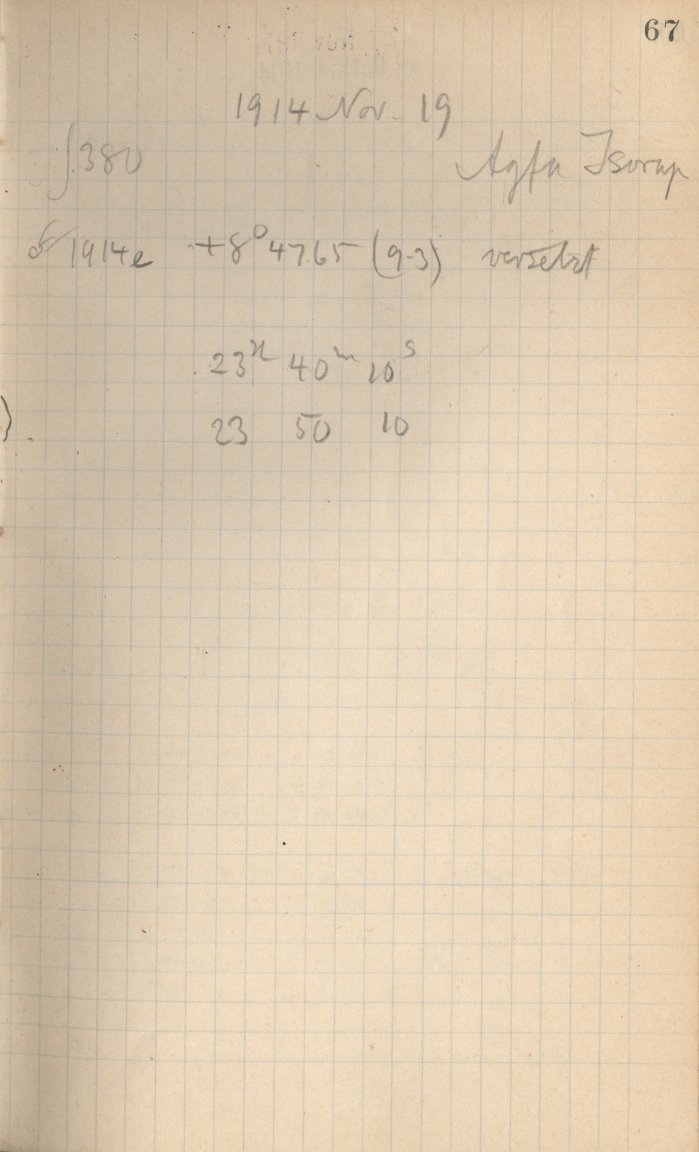 67
1914 Nov. 19
∫380 Agfa Isorap
☄ 1914e +8° 4765 (9.3) versetzt
23h 40m 10s
23 50 10